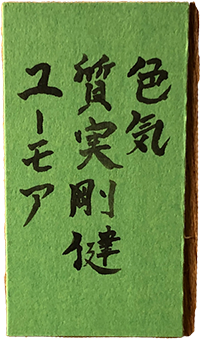 色気
質実剛健
ユーモア